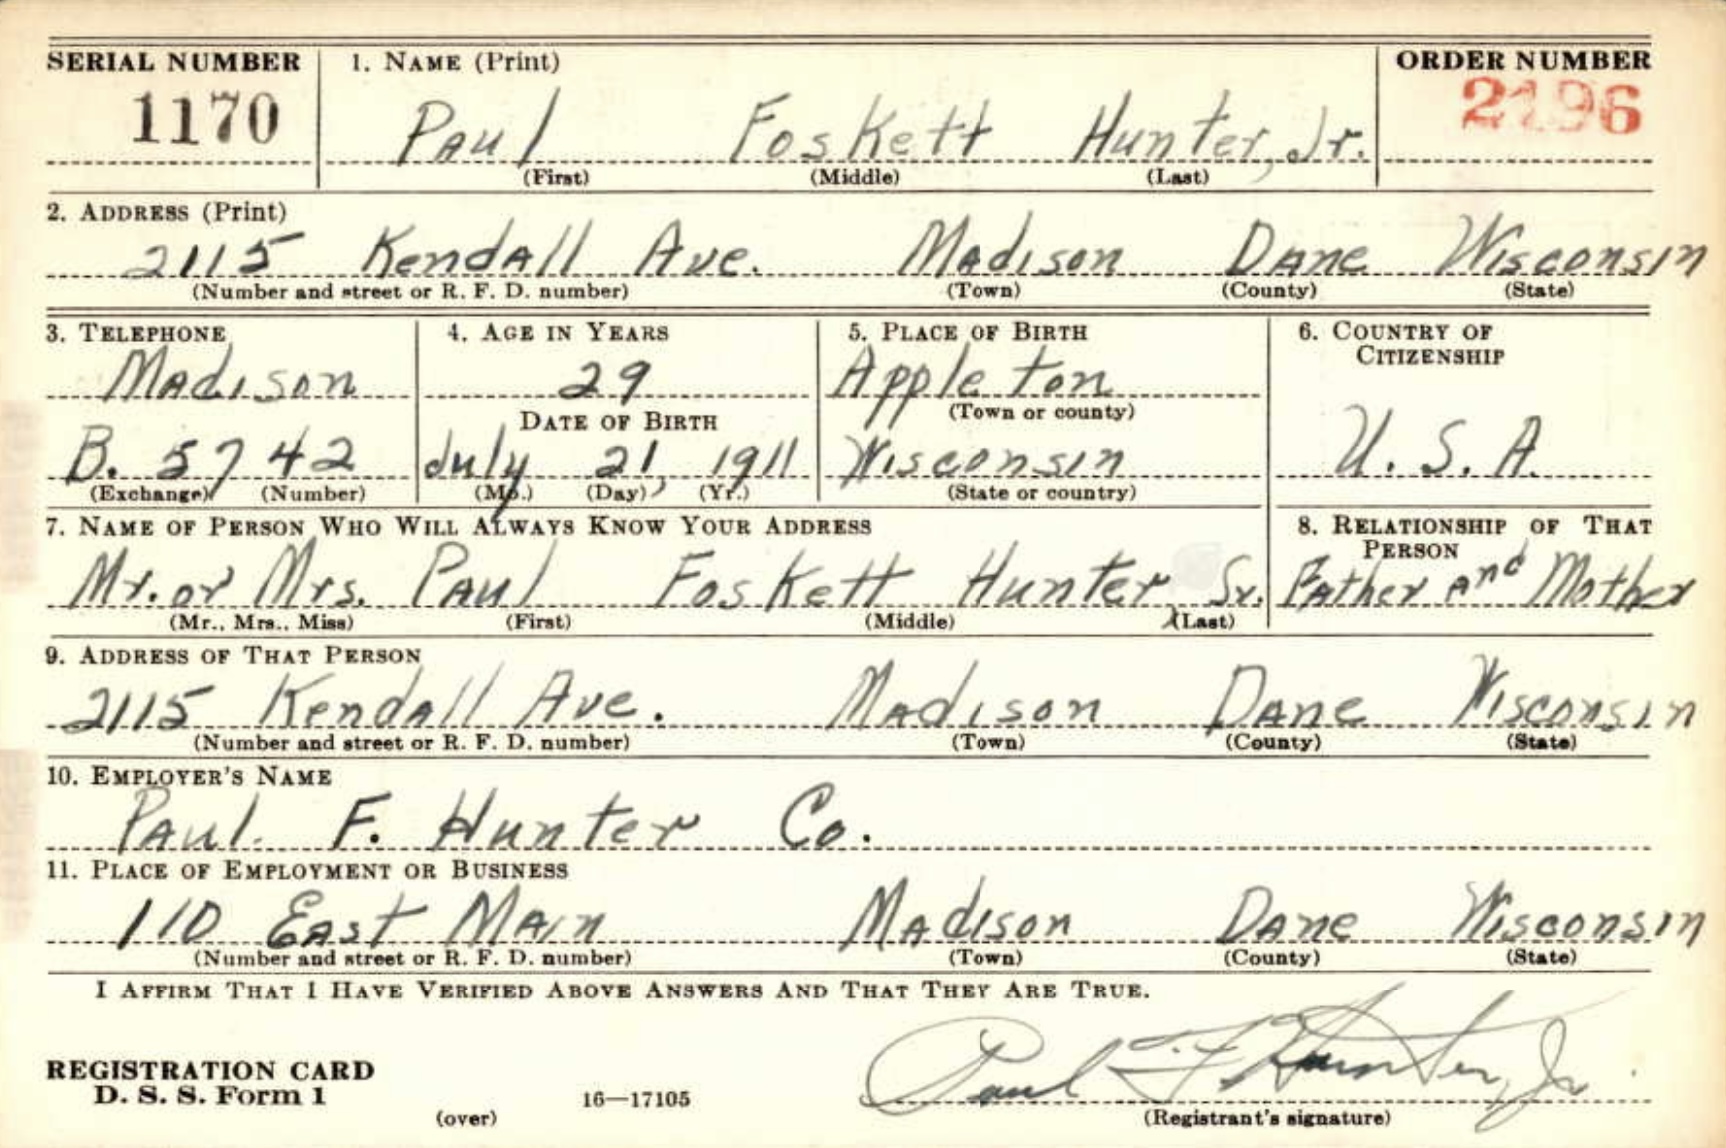 SERIAL NUMBER 1. NAME (Print) ORDER NUMBER
1170 Paul Foskett Hunter, Jr. 2196
(First) (Middle) (Last)
2. ADDRESS (Print)
2115 Kendall Ave. Madison Dane Wisconsin
(Number and street or R. F. D. number) (Town) (County) (State)
3. TELEPHONE 4. AGE IN YEARS 5. PLACE OF BIRTH 6. COUNTRY OF CITIZENSHIP
Madison 29 Appleton
DATE OF BIRTH (Town or county)
B. 5742 July 21, 1911 Wisconsin U. S. A.
(Exchange) (Number) (Mo.) (Day) (Yr.) (State or country)
7. NAME OF PERSON WHO WILL ALWAYS KNOW YOUR ADDRESS 8. RELATIONSHIP OF THAT PERSON
Mr. or Mrs. Paul Foskett Hunter, Sr. Father and Mother
(Mr., Mrs., Miss) (First) (Middle) (Last)
9. ADDRESS OF THAT PERSON
2115 Kendall Ave. Madison Dane Wisconsin
(Number and street or R. F. D. number) (Town) (County) (State)
10. EMPLOYER'S NAME
Paul F. Hunter Co.
11. PLACE OF EMPLOYMENT OR BUSINESS
110 East Main Madison Dane Wisconsin
(Number and street or R. F. D. number) (Town) (County) (State)
I AFFIRM THAT I HAVE VERIFIED ABOVE ANSWERS AND THAT THEY ARE TRUE.
REGISTRATION CARD
D. S. S. Form 1 Paul F. Hunter, Jr.
(over) 16—17105 (Registrant's signature)